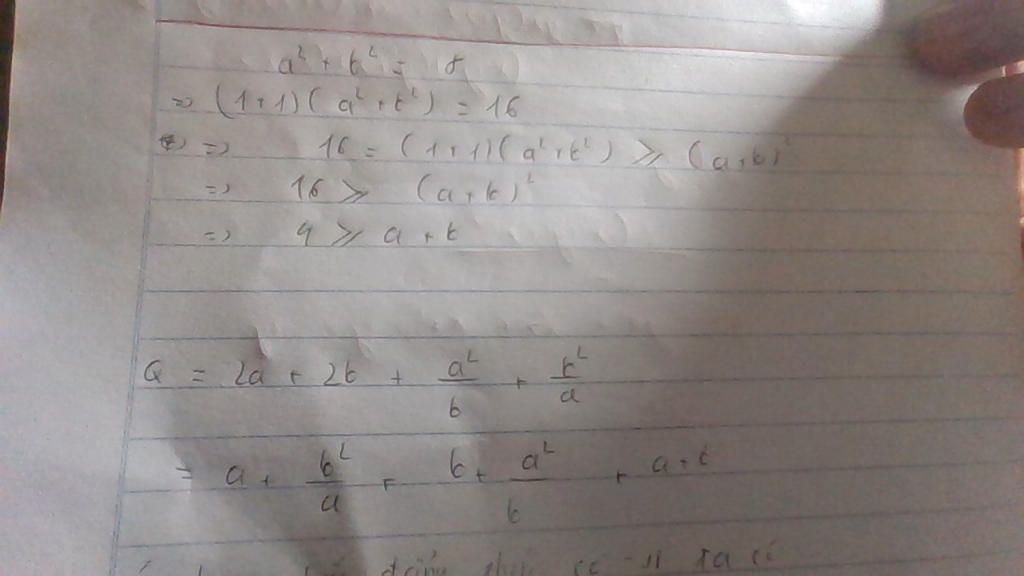 a² + b² = 8
=> (1+1)(a²+b²) = 16
=> 16 = (1+1)(a²+b²) ⩾ (a+b)²
=> 16 ⩾ (a+b)²
=> 4 ⩾ a + b
Q = 2a + 2b + a²/b + b²/a
= a + b²/a + b + a²/b + a+b
đẳng thức ta có